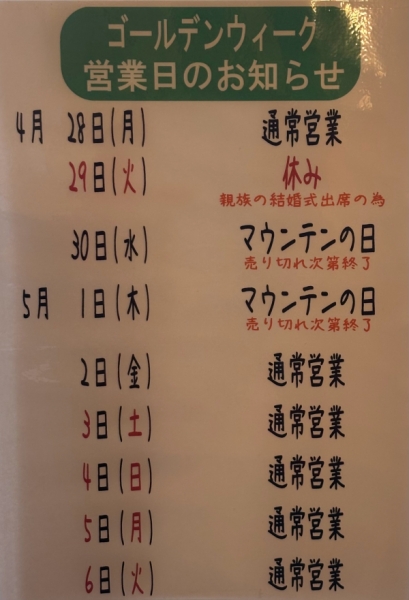 ゴールデンウィーク
営業日のお知らせ
4月 28日(月) 通常営業
29日(火) 休み
親族の結婚式出席の為
30日(水) マウンテンの日
売り切れ次第終了
5月 1日(木) マウンテンの日
売り切れ次第終了
2日(金) 通常営業
3日(土) 通常営業
4日(日) 通常営業
5日(月) 通常営業
6日(火) 通常営業